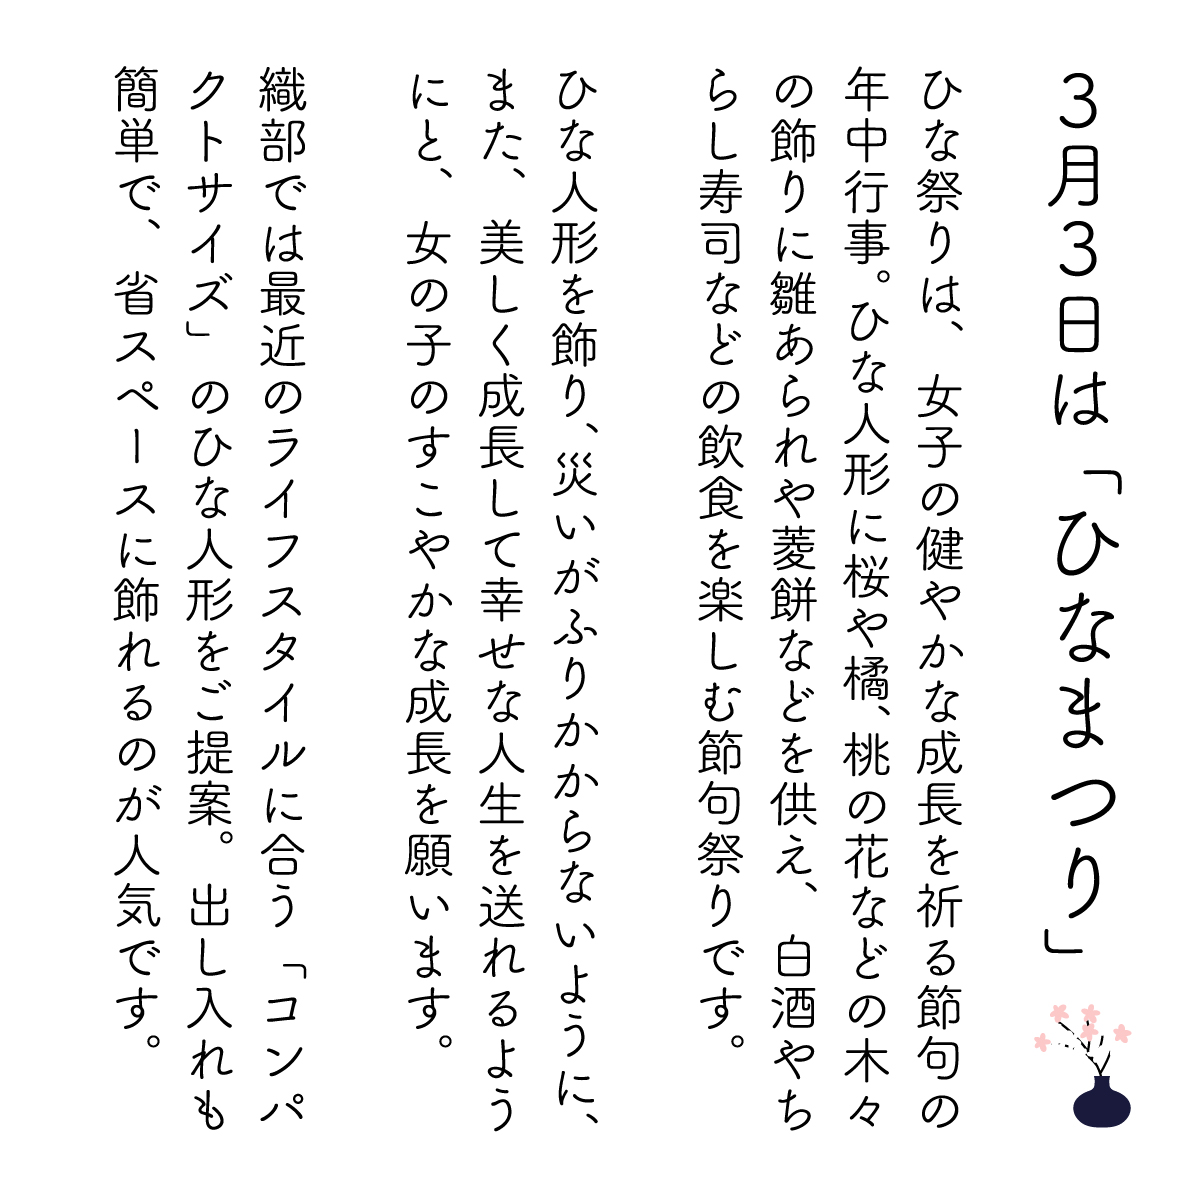 3月3日は「ひなまつり」
ひな祭りは、女子の健やかな成長を祈る節句の
年中行事。ひな人形に桜や橘、桃の花などの木々
の飾りに雛あられや菱餅などを供え、白酒やち
らし寿司などの飲食を楽しむ節句祭りです。
ひな人形を飾り、災いがふりかからないように、
また、美しく成長して幸せな人生を送れるよう
にと、女の子のすこやかな成長を願います。
織部では最近のライフスタイルに合う「コンパ
クトサイズ」のひな人形をご提案。出し入れも
簡単で、省スペースに飾れるのが人気です。